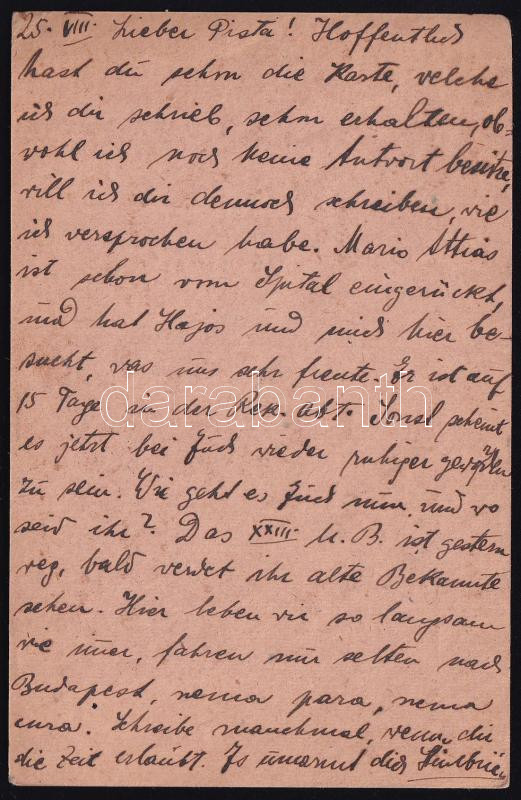 25. VIII. Lieber Pista! Hoffentlich
hast du schon die Karte, welche
ich dir schrieb, schon erhalten, ob-
wohl ich noch keine Antwort besitze,
will ich dir dennoch schreiben, wie
ich versprochen habe. Mario Attias
ist schon vom Spital eingerückt,
und hat Hajos und mich hier be-
sucht, was uns sehr freute. Er ist auf
15 Tage in der Rek. Abt. Sonst scheint
es jetzt bei Euch wieder ruhiger geworden
zu sein. Wie geht es Euch nun, und wo
seid ihr? Das XXIII. M. B. ist gestern
weg, bald werdet ihr alte Bekannte
sehen. Hier leben wir so langsam
wie immer, fahren nur selten nach
Budapest, nema para, nema
cura. Schreibe manchmal, wenn dir
die Zeit erlaubt. Es umarmt dich
darabanth